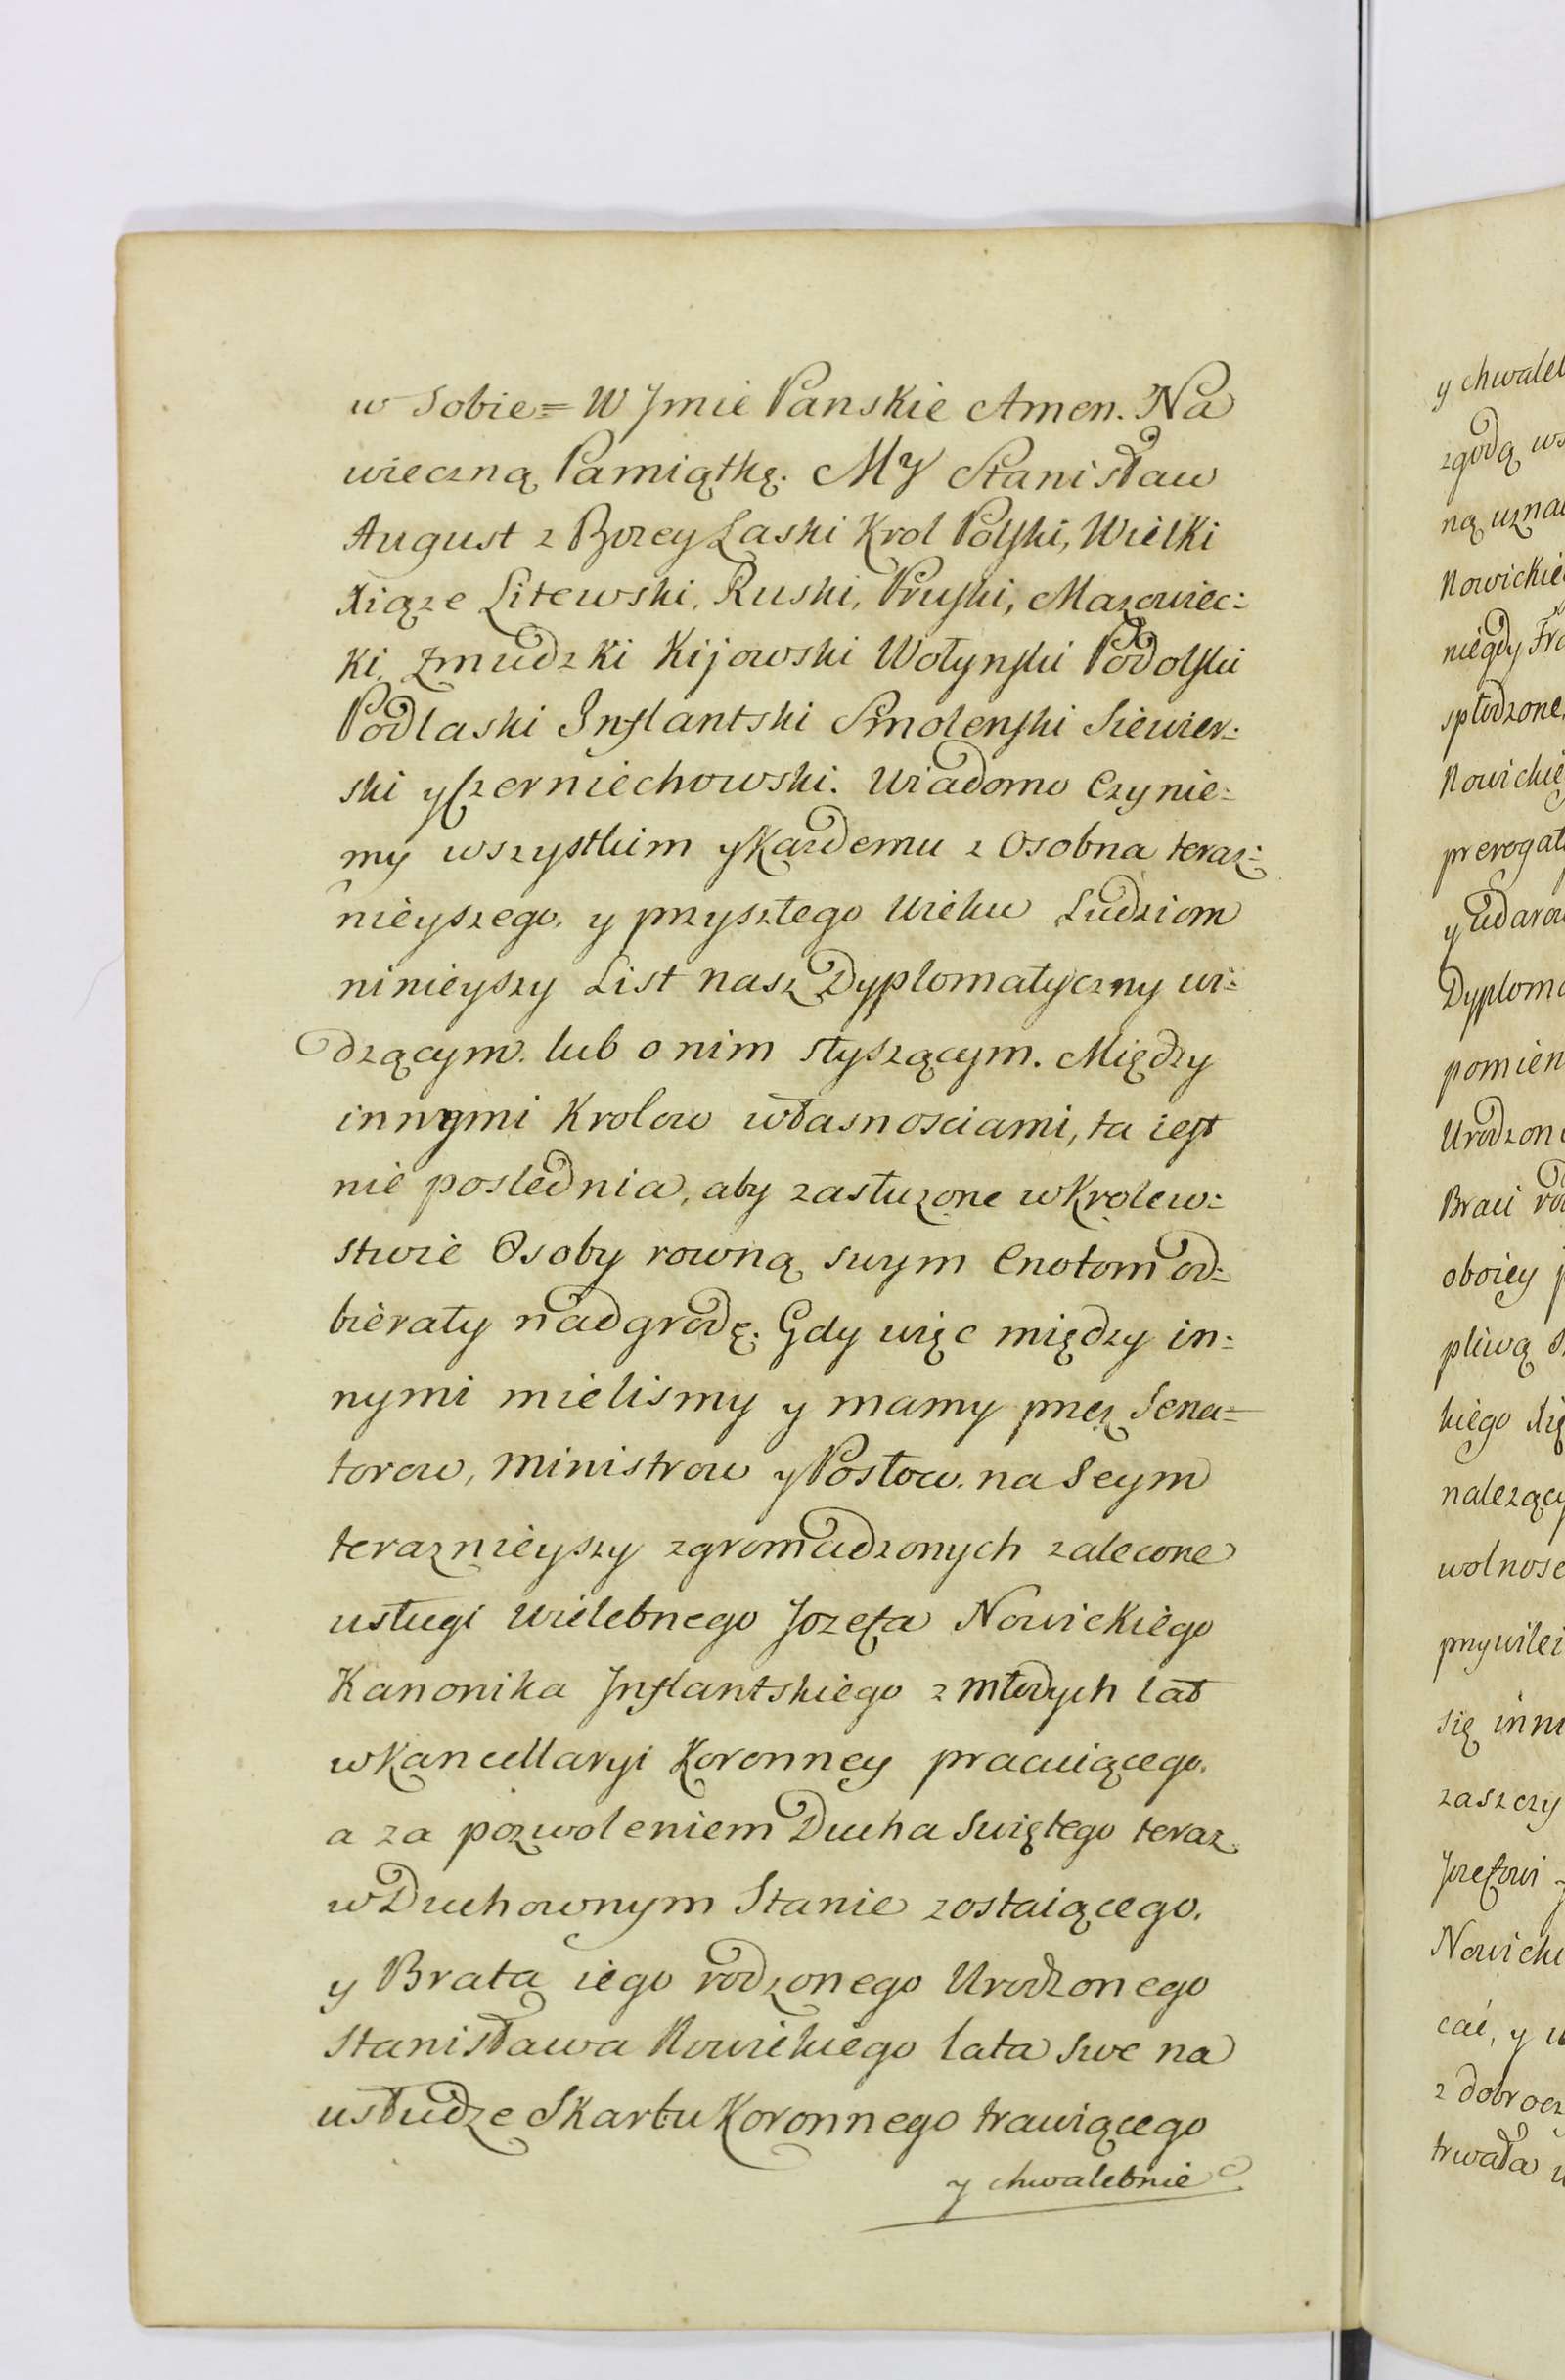 w Sobie = W Jmie Panskie Amen. Na
wieczną Pamiątkę. My Stanisław
August z Bozey Laski Krol Polski, Wielki
Xiąze Litewski, Ruski, Pruski, Mazowiec:
ki, Zmudzki Kijowski Wołynski Podolski
Podlaski Inflantski Smolenski Siewier:
ski y Czerniechowski. Wiadomo Czynie:
my wszystkim y Kazdemu z Osobna teraz:
nieyszego, y przyszłego Wieku Ludziom
ninieyszy List nasz Dyplomatyczny wi:
dzącym, lub o nim słyszącym. Między
innymi Krolow własnosciami, ta iest
nie poslednia, aby zasłuzone w Krolew:
stwie Osoby rowną swym Cnotom od:
bierały nadgrodę. Gdy więc między in:
nymi mielismy y mamy przez Sena=
torow, Ministrow y Posłow, na Seym
teraznieyszy zgromadzonych zalecone
usługi Wielebnego Jozefa Nowickiego
Kanonika Inflantskiego z młodych lat
w Kancellaryi Koronney pracuiącego,
a za pozwoleniem Ducha Swiętego teraz
w Duchownym Stanie zostaiącego,
y Brata iego rodzonego Urodzonego
Stanisława Nowickiego lata swe na
usłudze Skarbu Koronnego trawiącego
y chwalebnie
y chwaleb
zgodą ws
ną uznal
Nowickie
niegdy Fra
spłodzone,
Nowickie
prerogat
y udarow
Dyploma
pomien
Urodzon
Braci ro
oboiey p
pliwą
kiego Xią
nalezący
wolnosc
przywilei
się inni
zaszczy
Jozefowi
Nowicki
cai, y w
z dobrocz
trwała w